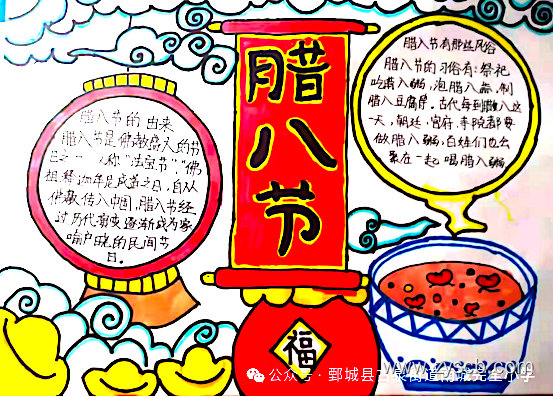 腊八节的由来
腊八节是佛教盛大的节
日之一,又称"法宝节""佛
祖释迦牟尼成道之日,自从
佛教传入中国,腊八节经
过历代演变逐渐成为家
喻户晓的民间节
日。
腊八节
福
腊八节有哪些风俗
腊八节的习俗有:祭祀
吃腊八粥,泡腊八蒜,制
腊八豆腐等。古代每到腊八这
一天,朝廷,官府,寺院都要
做腊八粥,百姓们也会
聚在一起喝腊八粥
公众号·鄄城县古泉街道